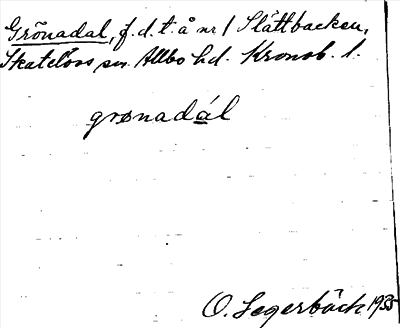 Grönadal, f.d.t. å nr 1 Slättbacken,
Skatelövs sn. Allbo hd. Kronob. l.
grønadál
O. Segerbäck 1935